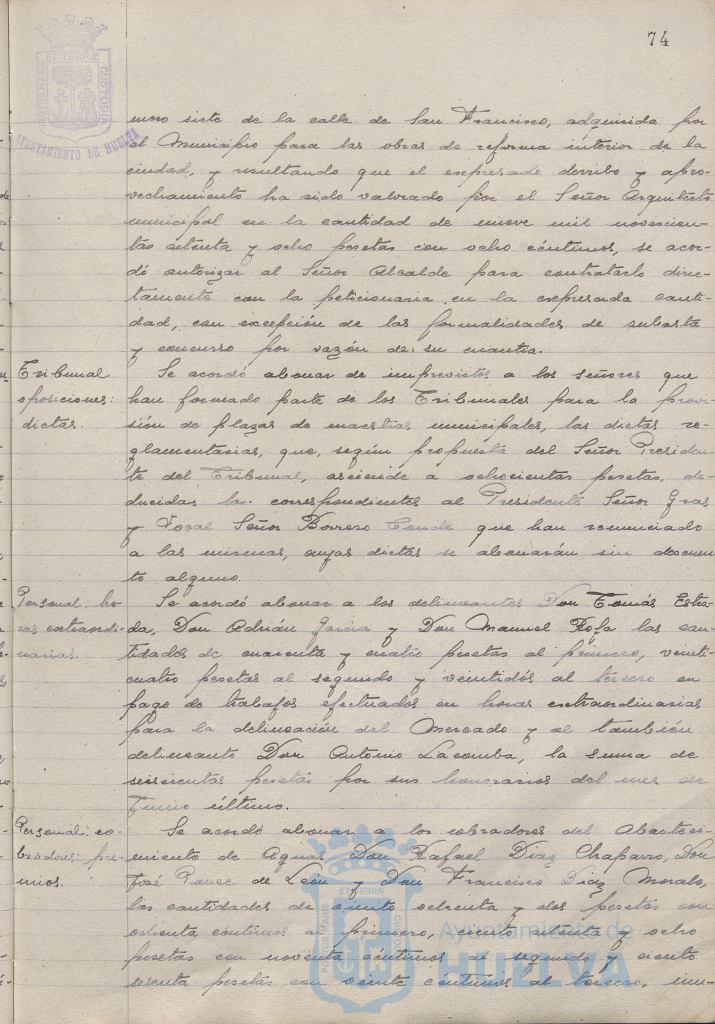 74
PORTUS MARIS ET TERRÆ CUSTODIA
AYUNTAMIENTO DE HUELVA
mero siete de la calle de San Francisco, adquirida por
el Municipio para las obras de reforma interior de la
ciudad, y resultando que el expresado derribo y apro-
vechamiento ha sido valorado por el Señor Arquitecto
municipal en la cantidad de nueve mil novecien-
tas setenta y ocho pesetas con ocho céntimos, se acor-
dó autorizar al Señor Alcalde para contratarlo direc-
tamente con la peticionaria en la expresada canti-
dad, con excepción de las formalidades de subasta
y concurso por razón de su cuantía.
Tribunal
oposiciones:
dietas.
Se acordó abonar de imprevistos a los señores que
han formado parte de los Tribunales para la provi-
sión de plazas de maestras municipales, las dietas re-
glamentarias, que, según propuesta del Señor Presiden-
te del Tribunal, asciende a ochocientas pesetas, de-
ducidas las correspondientes al Presidente Señor Gras
y Vocal Señor Borrero Conde que han renunciado
a las mismas, cuyas dietas se abonarán sin descuen-
to alguno.
Personal: ho-
ras extraordi-
narias.
Se acordó abonar a los delineantes Don Tomás Estra-
da, Don Adrián García y Don Manuel Rofa las can-
tidades de cuarenta y cuatro pesetas al primero, veinti-
cuatro pesetas al segundo y veintidós al tercero en
pago de trabajos efectuados en horas extraordinarias
para la delineación del Mercado y al también
delineante Don Antonio Lacomba, la suma de
seiscientas pesetas por sus honorarios del mes de
Junio último.
Personal: co-
bradores: pre-
mios.
Se acordó abonar a los cobradores del Abasteci-
miento de Aguas Don Rafael Díaz Chaparro, Don
José Ponce de León y Don Francisco Díaz Morales,
las cantidades de ciento ochenta y dos pesetas con
ochenta céntimos al primero, ciento setenta y ocho
pesetas con noventa céntimos al segundo y ciento
sesenta pesetas con veinte céntimos al tercero, im-
PORTUS MARIS ET TERRÆ CUSTODIA
Ayuntamiento de
HUELVA